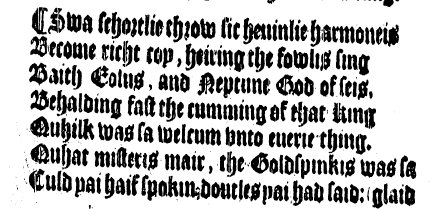 ¶Swa schortlie throw sic heuinlie harmoneis
Become richt coy, heiring the fowlis sing
Baith Eolus, and Neptune God of seis.
Behalding fast the cumming of that King
Quhilk was sa welcum vnto euerie thing.
Quhat misteris mair, the Goldspinkis was sa
Culd þai haif spokin, doutles þai had said: (glaid